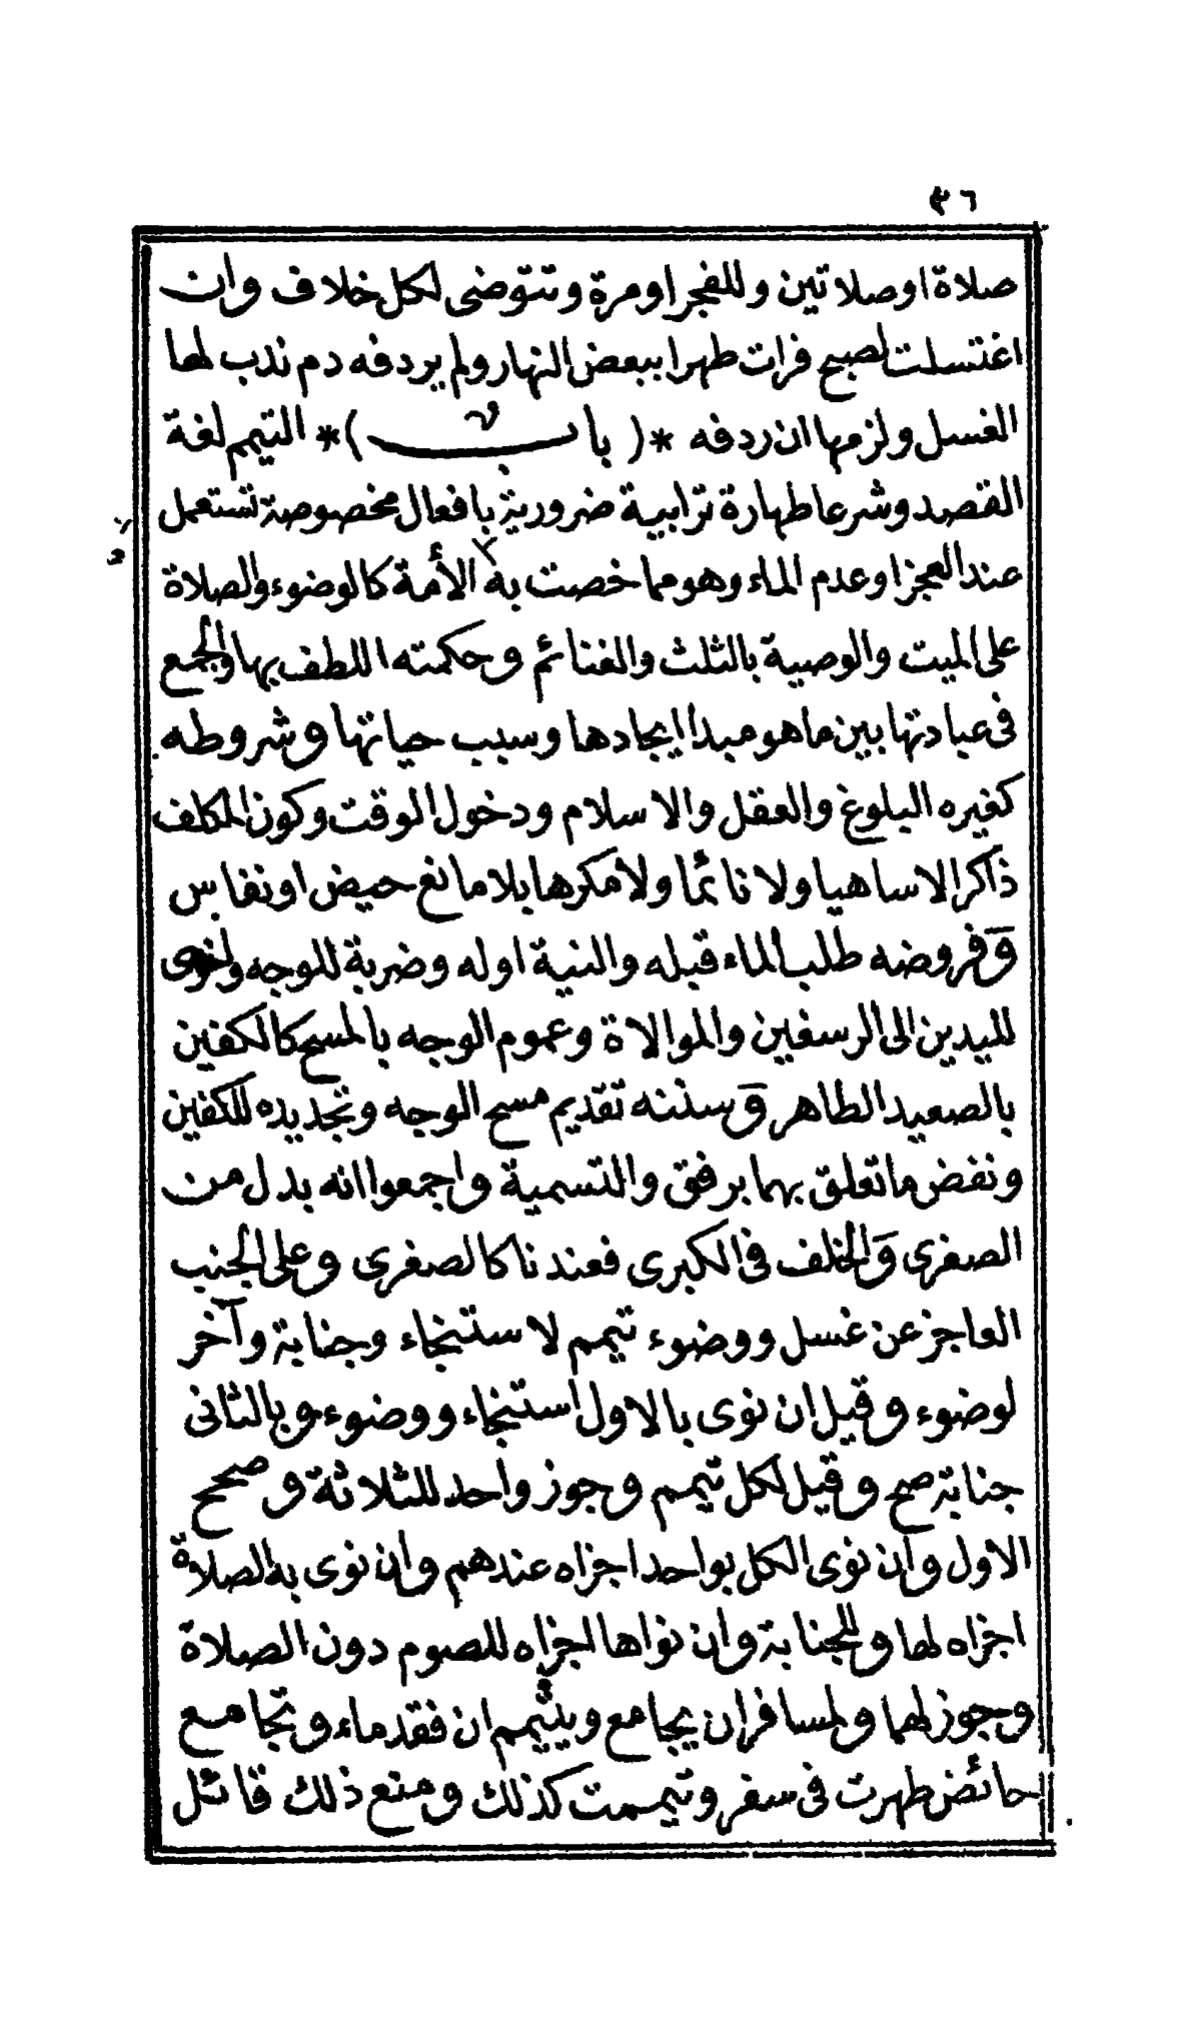 ٣٦
صلاة او صلاتين وللفجر او مرة وتتوضى لكل خلاف وان
اغتسلت لصبح فرات طهرا ببعض النهار ولم يردفه دم ندب لها
الغسل ولزمها ان ردفه *( باب )* التيمم لغة
القصد وشرعا طهارة ترابية ضرورية بافعال مخصوصة تستعمل
عند العجز او عدم الماء وهو مما خصت به الأمة كالوضوء والصلاة
على الميت والوصية بالثلث والغنائم وحكمته اللطف بها والجمع
فى عبادتها بين ما هو مبدا ايجادها وسبب حياتها وشروطه
كغيره البلوغ والعقل والاسلام ودخول الوقت وكون المكلف
ذاكرا لا ساهيا ولا نائما ولا مكرها بلا مانع حيض او نفاس
وفروضه طلب الماء قبله والنية اوله وضربة للوجه واخرى
لليدين الى الرسغين والموالاة وعموم الوجه بالمسح كالكفين
بالصعيد الطاهر وسننه تقديم مسح الوجه وتجديده للكفين
ونفض ما تعلق بهما برفق والتسمية واجمعوا انه بدل من
الصغرى والخلف فى الكبرى فعندنا كالصغرى وعلى الجنب
العاجز عن غسل ووضوء تيمم لاستنجاء وجنابة وآخر
لوضوء وقيل ان نوى بالاول استنجاء ووضوء وبالثانى
جنابة صح وقيل لكل تيمم وجوز واحد للثلاثة وصحح
الاول وان نوى الكل بواحد اجزاه عندهم وان نوى به الصلاة
اجزاه لها وللجنابة وان نواها اجزاه للصوم دون الصلاة
وجوز لهما ولمسافر ان يجامع ويتيمم ان فقد ماء وتجامع
حائض طهرت فى سفر وتيممت كذلك ومنع ذلك قائل